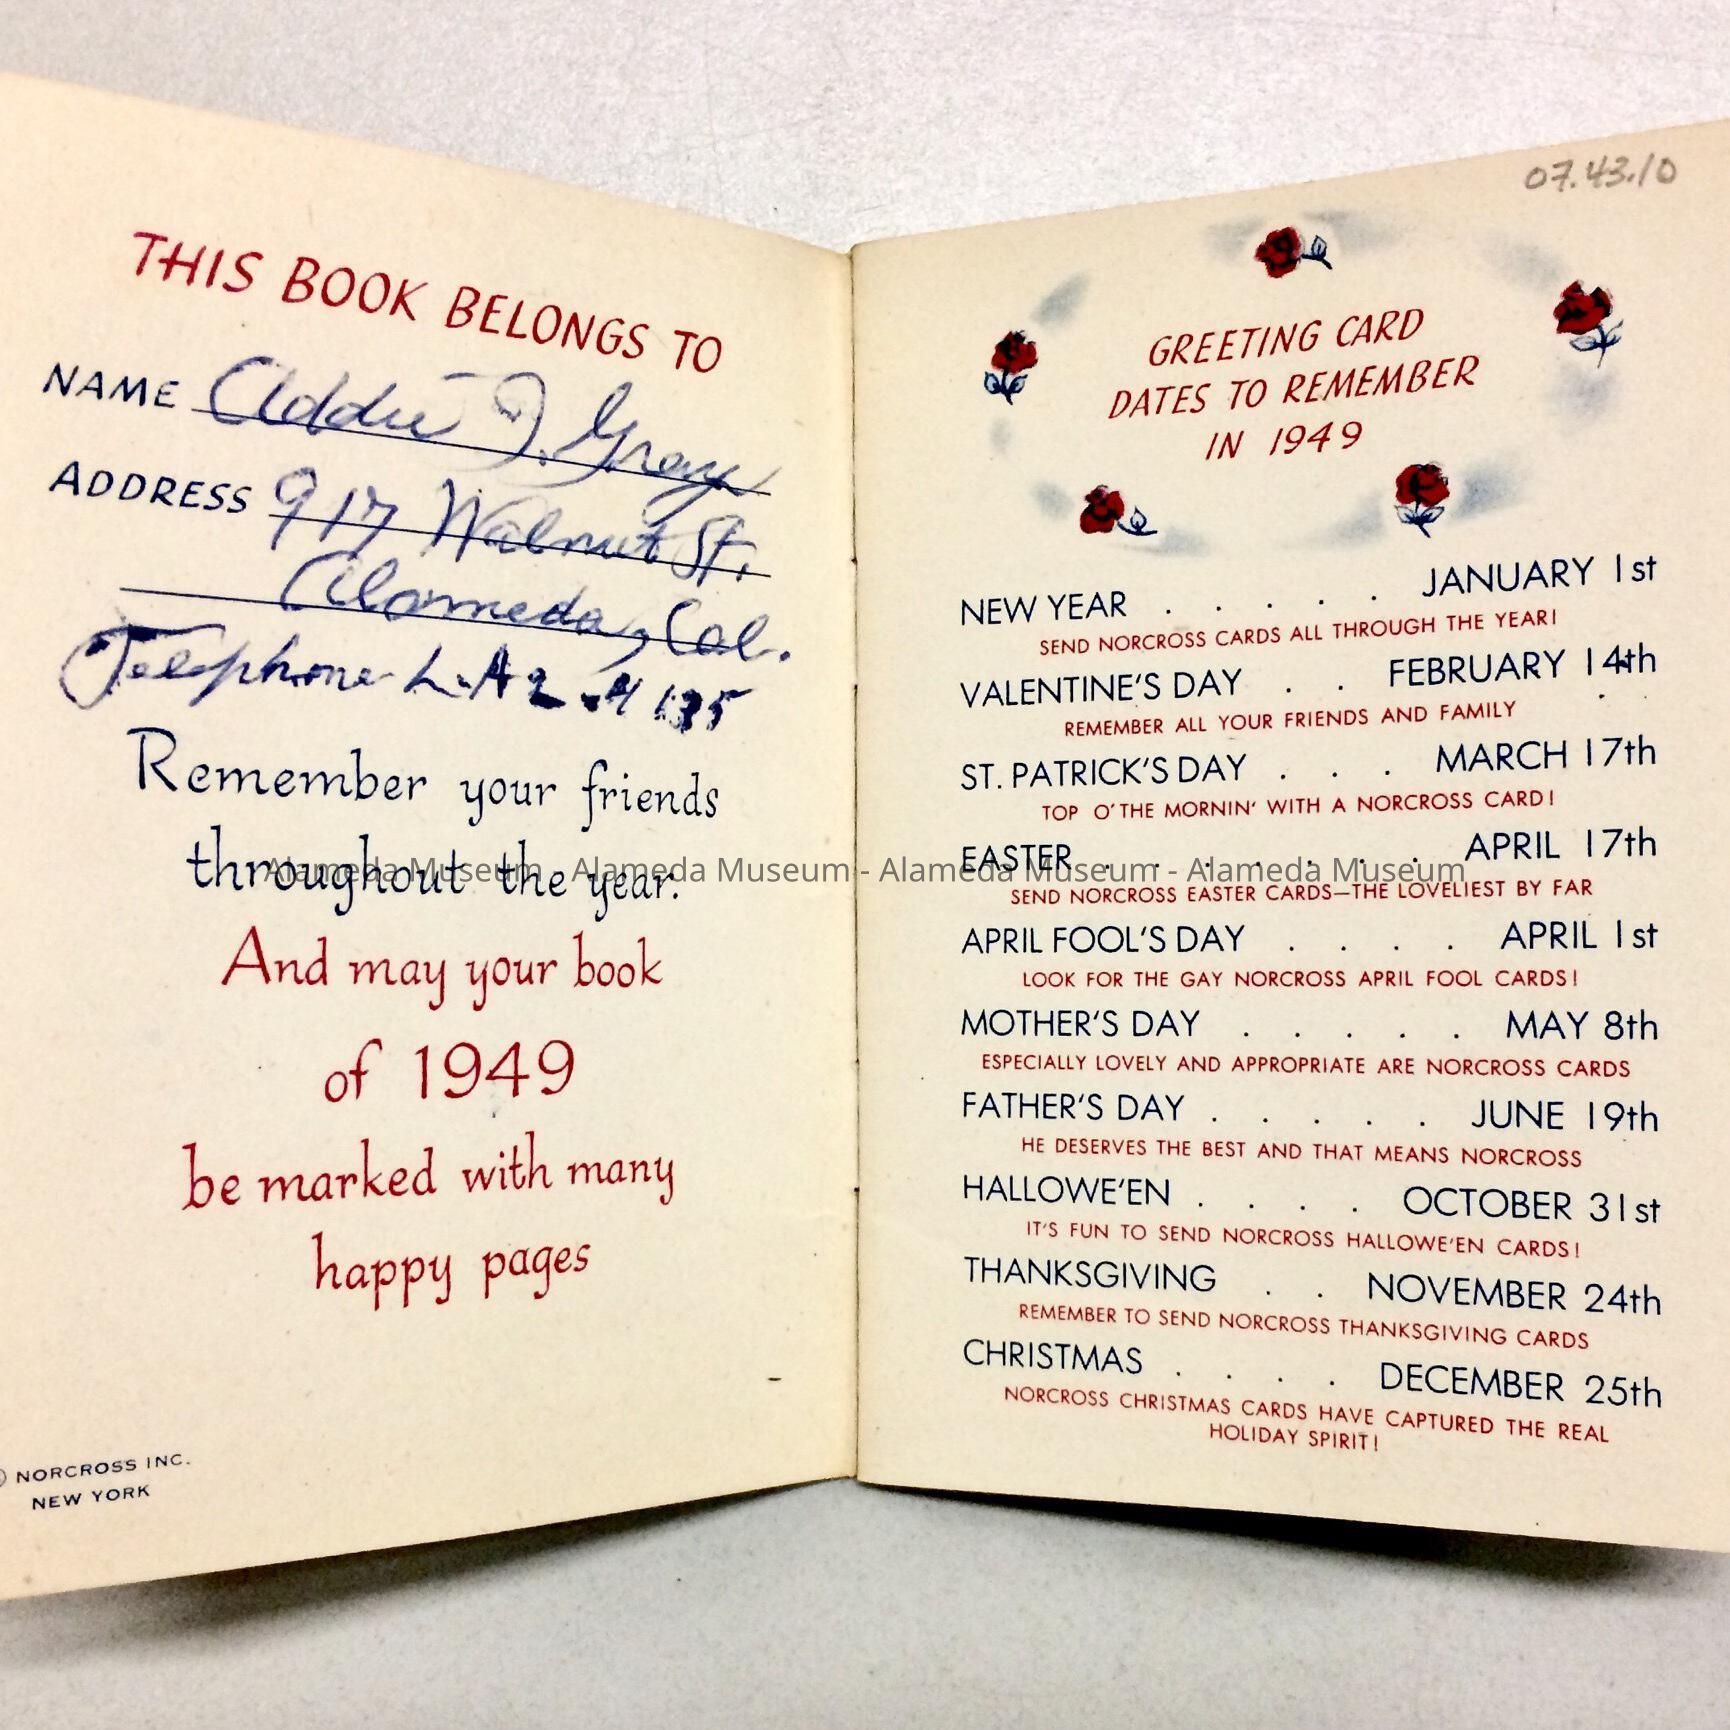 THIS BOOK BELONGS TO
NAME Addie J. Gray
ADDRESS 917 Walnut St.
Alameda, Cal.
Telephone L.A 2
Remember your friends
throughout the year.
And may your book
of 1949
be marked with many
happy pages
© NORCROSS INC.
NEW YORK
07.43.10
GREETING CARD
DATES TO REMEMBER
IN 1949
NEW YEAR . . . . . JANUARY 1st
SEND NORCROSS CARDS ALL THROUGH THE YEAR!
VALENTINE'S DAY . . FEBRUARY 14th
REMEMBER ALL YOUR FRIENDS AND FAMILY
ST. PATRICK'S DAY . . . MARCH 17th
TOP O' THE MORNIN' WITH A NORCROSS CARD!
EASTER . . . . . . . APRIL 17th
SEND NORCROSS EASTER CARDS—THE LOVELIEST BY FAR
APRIL FOOL'S DAY . . . . APRIL 1st
LOOK FOR THE GAY NORCROSS APRIL FOOL CARDS!
MOTHER'S DAY . . . . . MAY 8th
ESPECIALLY LOVELY AND APPROPRIATE ARE NORCROSS CARDS
FATHER'S DAY . . . . . JUNE 19th
HE DESERVES THE BEST AND THAT MEANS NORCROSS
HALLOWE'EN . . . . OCTOBER 31st
IT'S FUN TO SEND NORCROSS HALLOWE'EN CARDS!
THANKSGIVING . . NOVEMBER 24th
REMEMBER TO SEND NORCROSS THANKSGIVING CARDS
CHRISTMAS . . . . DECEMBER 25th
NORCROSS CHRISTMAS CARDS HAVE CAPTURED THE REAL
HOLIDAY SPIRIT!
Alameda Museum - Alameda Museum - Alameda Museum - Alameda Museum